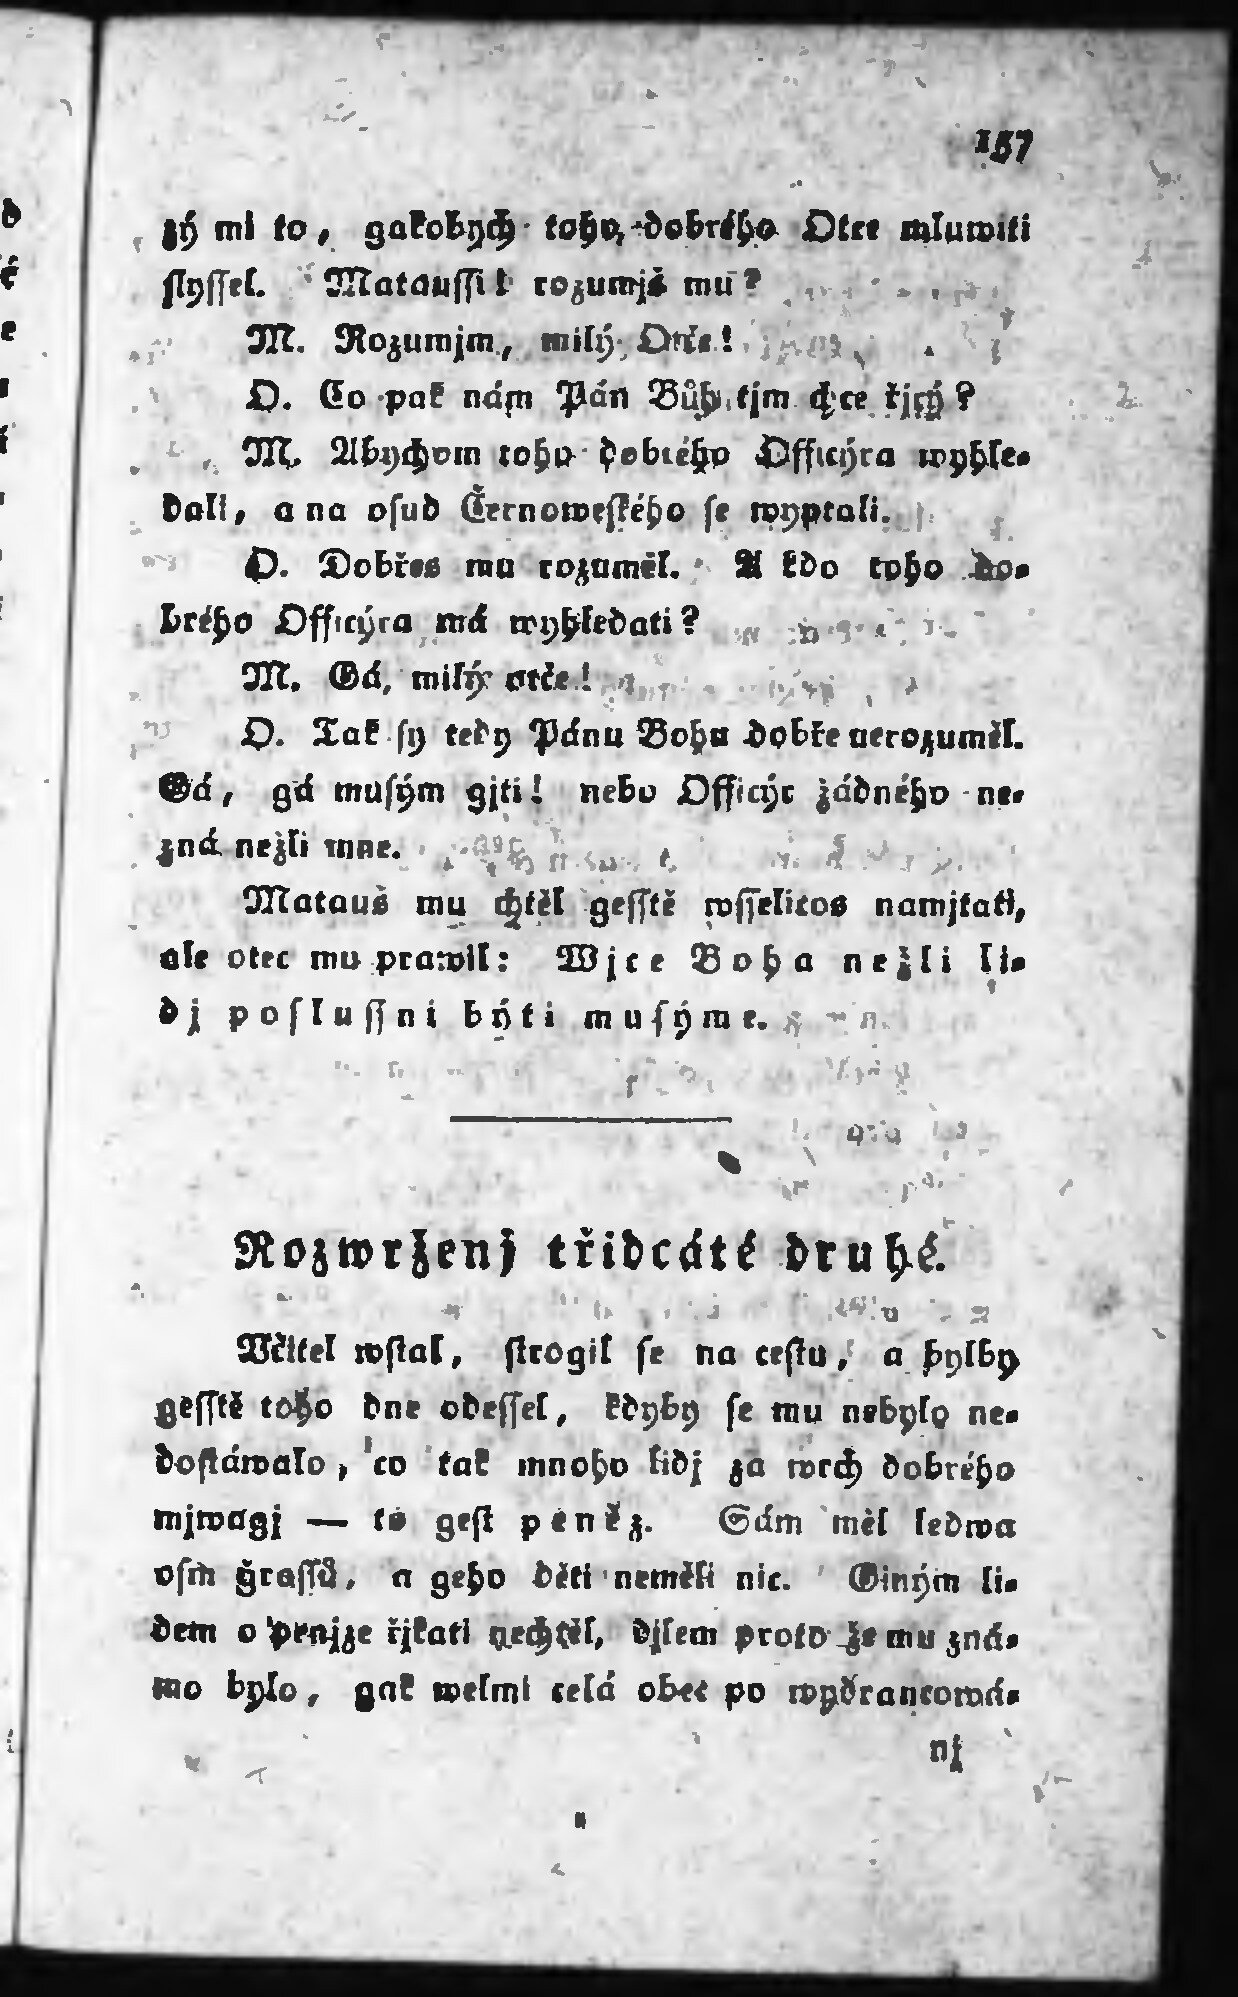 157
zý mi to, gakobych toho dobrého Otce mluwiti
slyssel. Mataussi! rozumjš mu?
M. Rozumjm, milý Otče!
O. Co pak nám Pán Bůh tjm chce řjcý?
M. Abychom toho dobrého Officýra wyhle-
dali, a na osud Černoweského se wyptali.
O. Dobřes mu rozuměl. A kdo toho do-
brého Officýra má wyhledati?
M. Gá, milý otče!
O. Tak sy tedy Pánu Bohu dobře nerozuměl.
Gá, gá musým gjti! nebo Officýr žádného ne-
zná nežli mne.
Matauš mu chtěl gesstě wsselicos namjtati,
ale otec mu prawil: Wjce Boha nežli li-
dj poslussni býti musýme.
Rozwrženj třidcáté druhé.
Včitel wstal, strogil se na cestu, a bylby
gesstě toho dne odessel, kdyby se mu nebylo ne-
dostáwalo, co tak mnoho lidj za wrch dobrého
mjwagj — to gest peněz. Sám měl ledwa
osm grossů, a geho děti neměli nic. Giným li-
dem o penjze řjkati nechtěl, djlem proto že mu zná-
mo bylo, gak welmi celá obec po wydrancowá-
nj